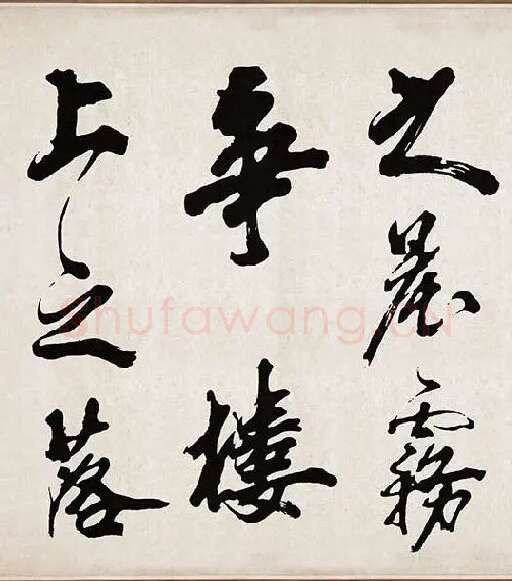 之晨霧
華樓
上之落
Shufawang.CN